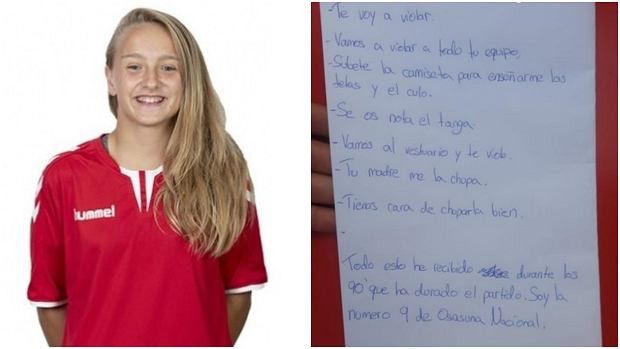 hummel
-Te voy a violar.
-Vamos a violar a todo tu equipo,
-Subete la camiseta para enseñarme las
tetas y el culo.
-Se os nota el tanga.
-Vamos al vestuario y te violo.
-Tu madre me la chupa.
-Tienes cara de chuparla bien.
-
Todo esto he recibido durante los
90' que ha durado el partido. Soy la
numero 9 de Osasuna Nacional.